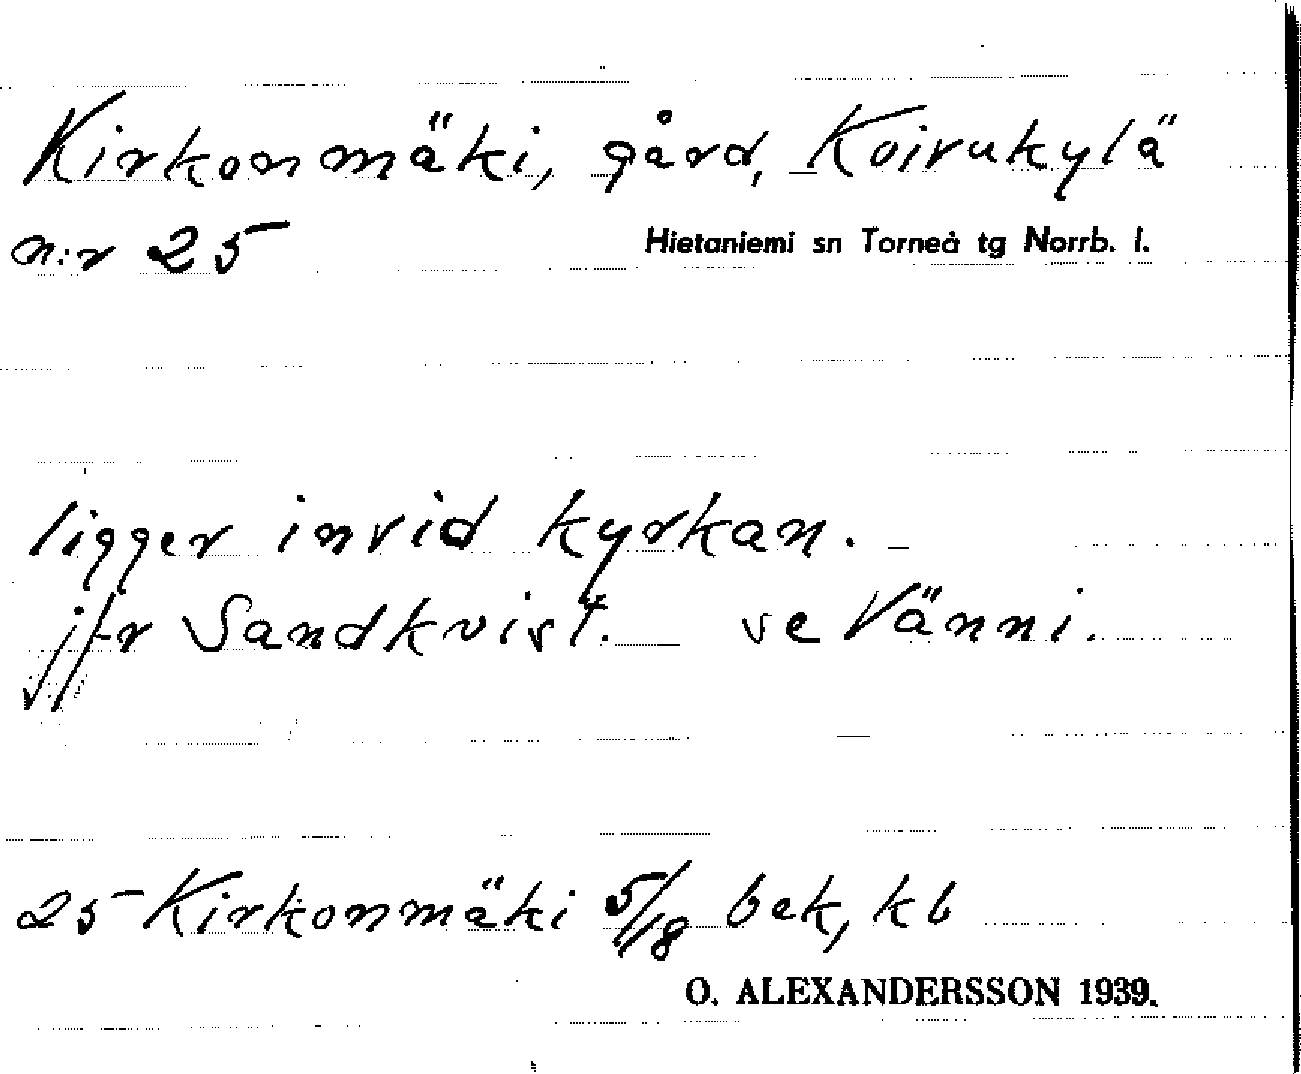 Kirkonmäki, gård, Koirukylä
n:r 25
Hietaniemi sn Torneå tg Norrb. l.
ligger invid kyrkan. –
jfr Sandkvist. se Vänni.
25 Kirkonmäki 5/18 bek, kb
O. ALEXANDERSSON 1939.